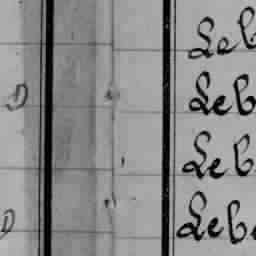 Leb
D Leb
Leb
D Leb